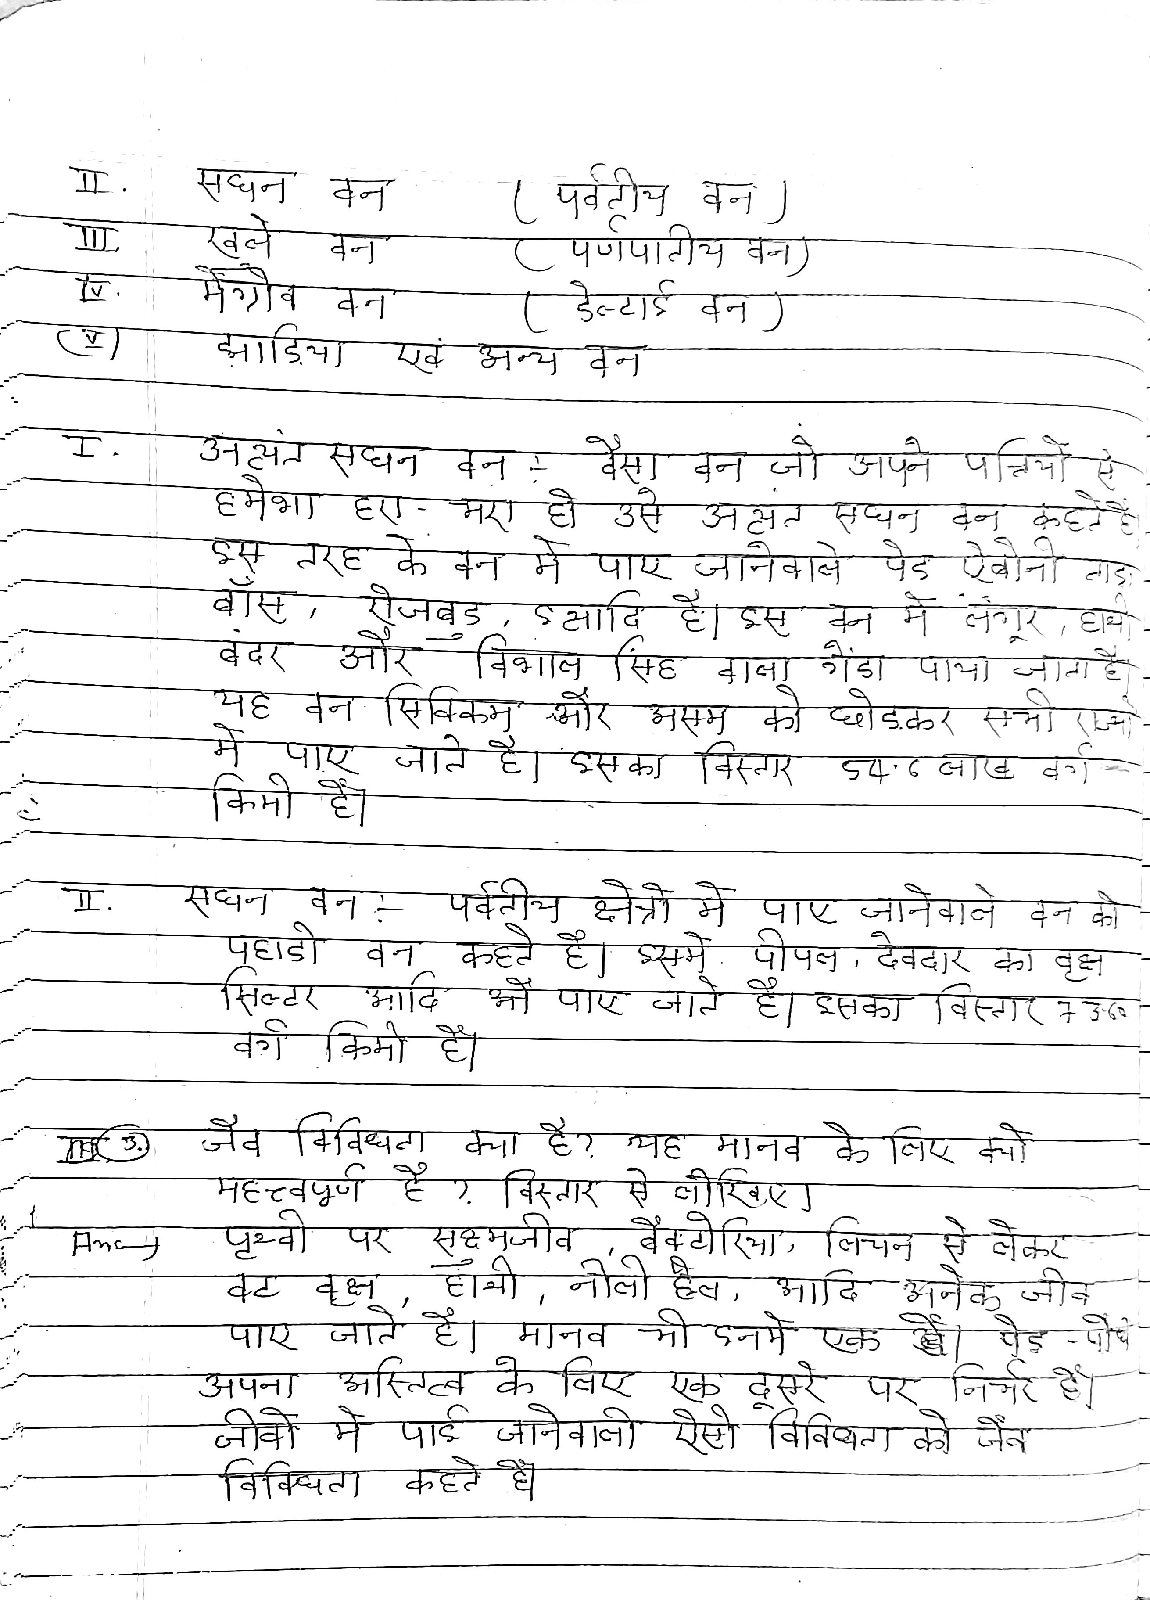 II. सघन वन ( पर्वतीय वन )
III खुले वन ( पर्णपातीय वन)
IV. मैंग्रोव वन ( डेल्टाई वन )
(V) झाड़िया एवं अन्य वन
I. अत्यंत सघन वन :- वैसा वन जो अपने पत्तियों से
हमेशा हरा - भरा हो उसे अत्यंत सघन वन कहते है
इस तरह के वन में पाए जानेवाले पेड ऐबोनी ताड़
बाँस , रोजवुड , इत्यादि है। इस वन में लंगूर , हाथी
बंदर और विशाल सिंह वाला गेंडा पाया जाता है।
यह वन सिक्किम और असम को छोड़कर सभी राज्यो
में पाए जाते है। इसका विस्तार 54.6 लाख वर्ग -
किमी है।
II. सघन वन :- पर्वतीय क्षेत्रो में पाए जानेवाले वन को
पहाडी वन कहते है। इसमें पीपल , देवदार का वृक्ष
सिल्टर आदि भी पाए जाते है। इसका विस्तार 73.60
वर्ग किमी है।
(3.) जैव विविधता क्या है? यह मानव के लिए क्यों
महत्त्वपूर्ण है ? विस्तार से लीखिए।
Ans → पृथ्वी पर सुक्ष्मजीव , बैक्टीरिया , लिचन से लेकर
वट वृक्ष , हाथी , नीली हैल , आदि अनेक जीव
पाए जाते है। मानव भी इनमे एक है। पेड़ - पौधे
अपना अस्तित्व के लिए एक दूसरे पर निर्भर है।
जीवो में पाई जानेवाली ऐसी विविधता को जैव
विविधता कहते है।